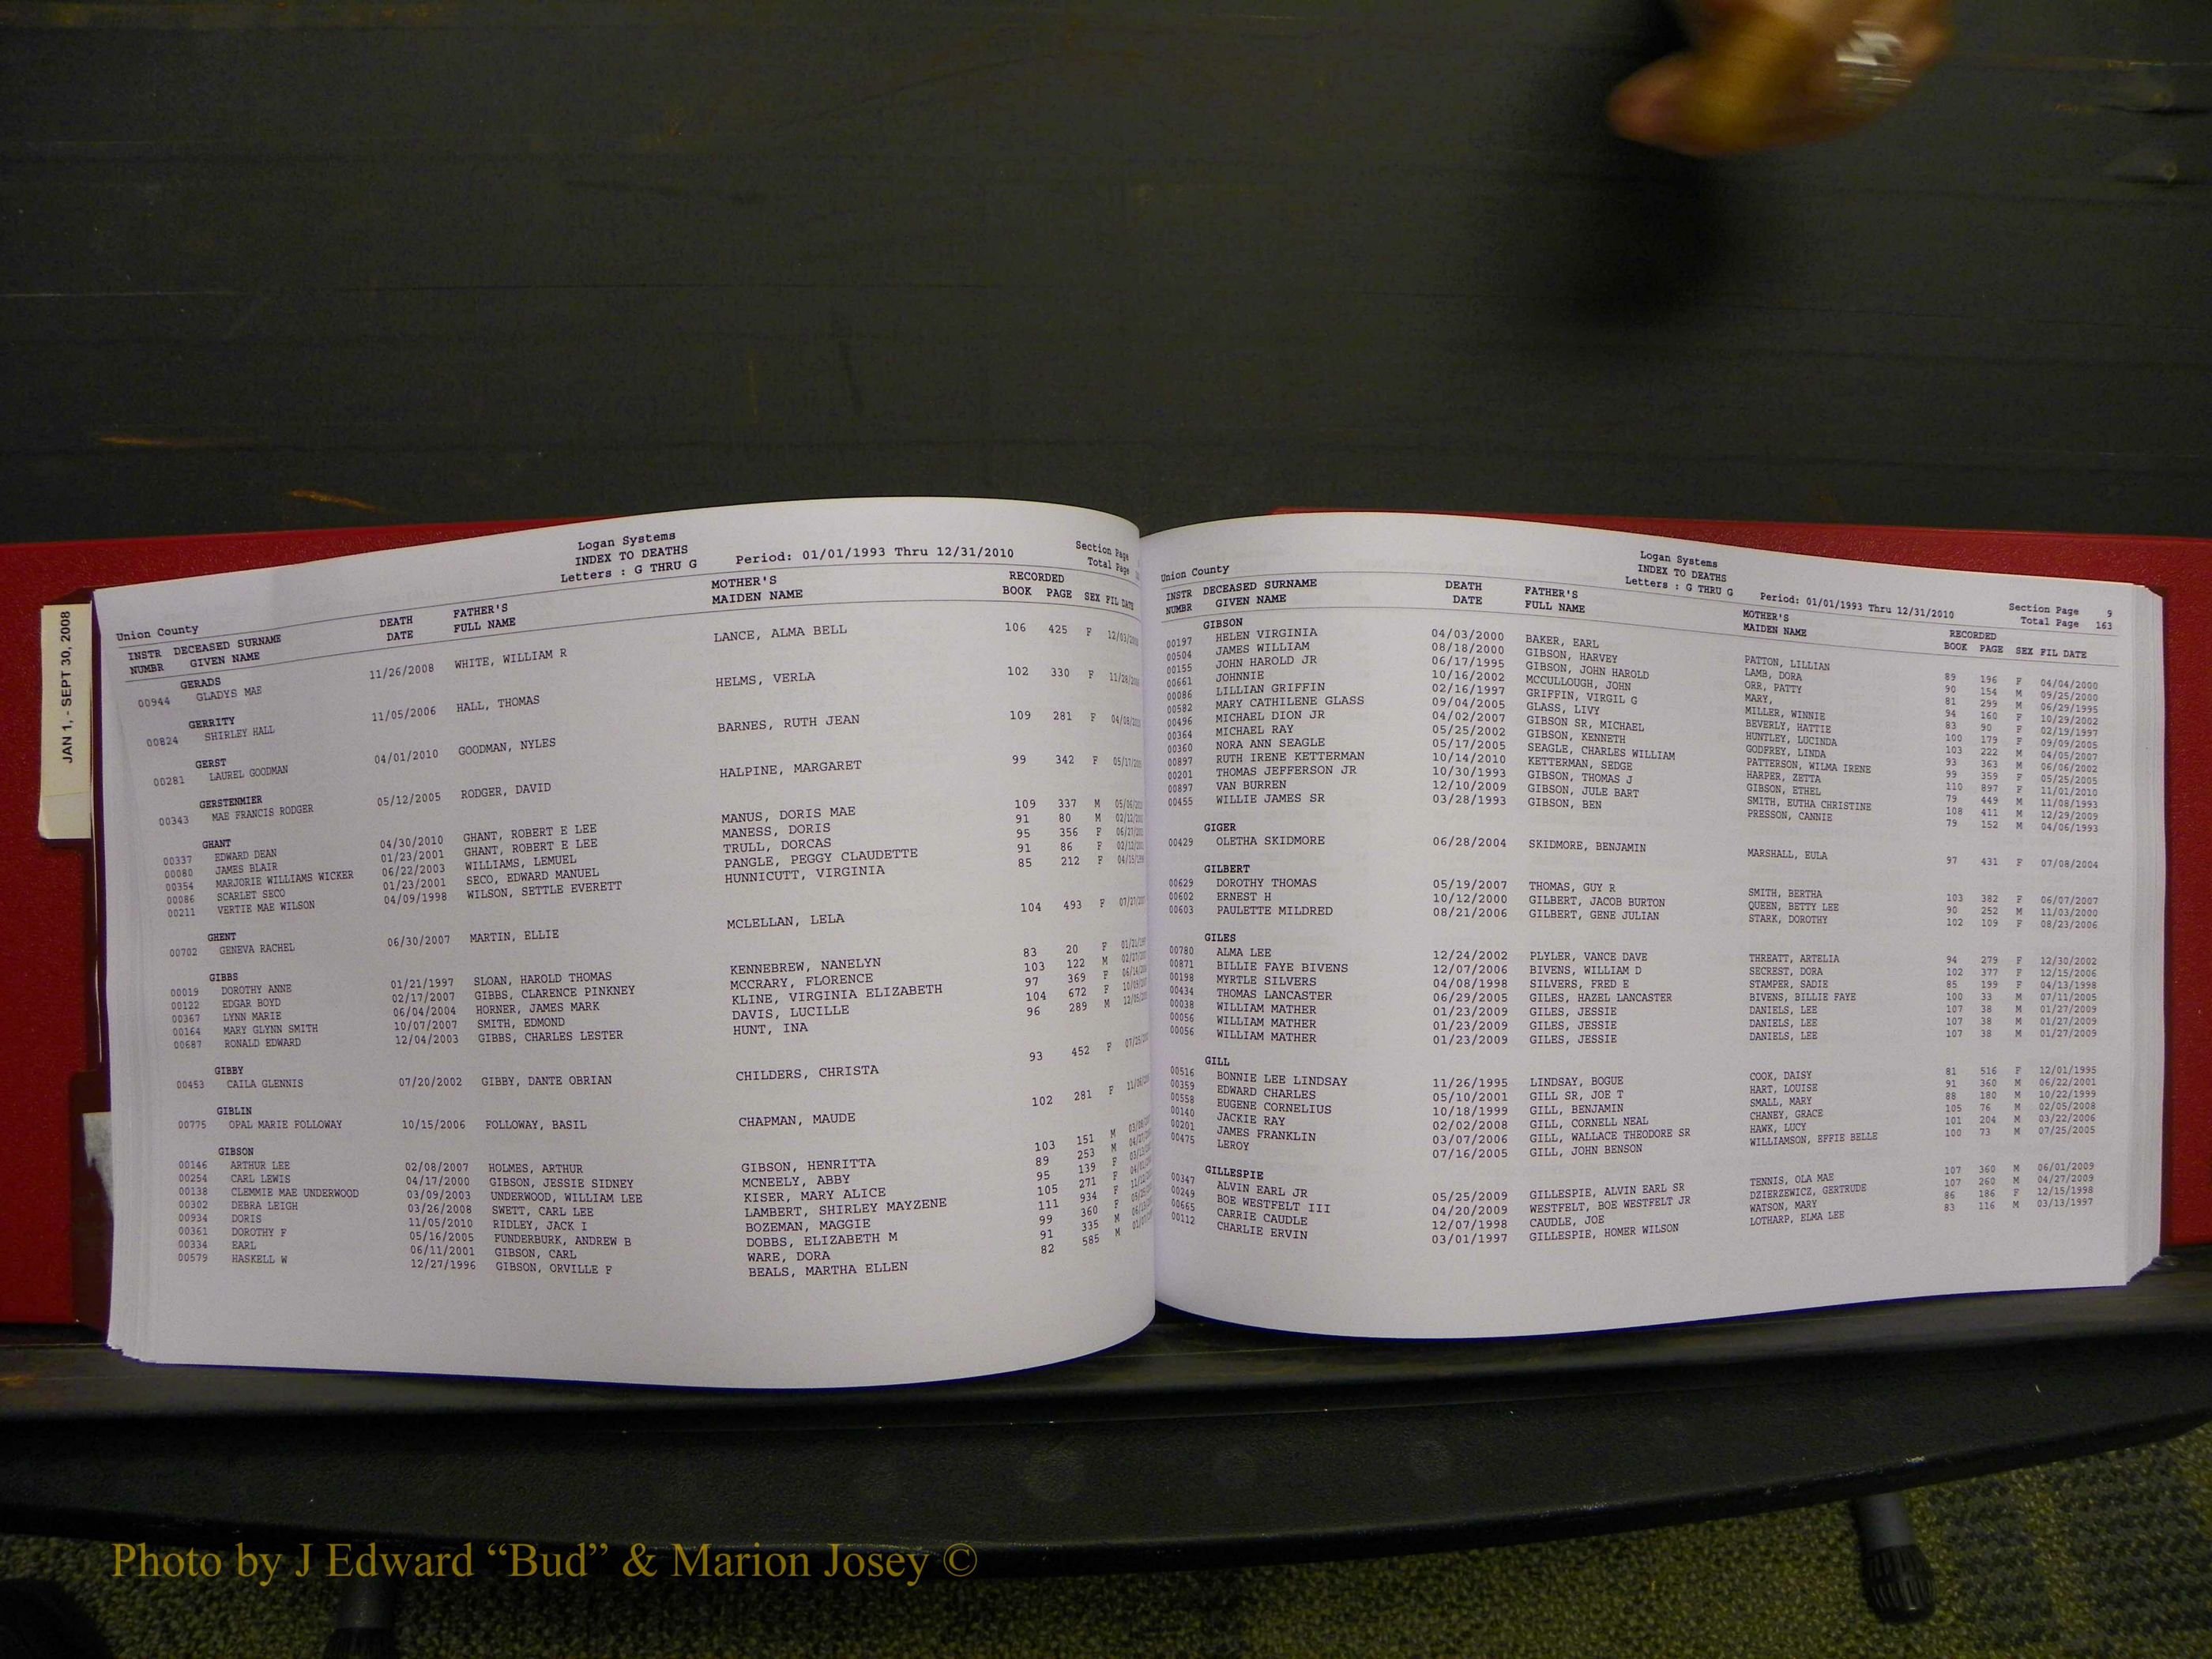 JAN 1, - SEPT 30, 2008
Logan Systems
INDEX TO DEATHS
Union County Letters : G THRU G Period: 01/01/1993 Thru 12/31/2010 Section Page
Total Page
INSTR DECEASED SURNAME DEATH FATHER'S MOTHER'S RECORDED
NUMBR GIVEN NAME DATE FULL NAME MAIDEN NAME BOOK PAGE SEX FIL DATE
GERADS
00944 GLADYS MAE 11/26/2008 WHITE, WILLIAM R LANCE, ALMA BELL 106 425 F
GERRITY
00824 SHIRLEY HALL 11/05/2006 HALL, THOMAS HELMS, VERLA 102 330 F
GERST
00281 LAUREL GOODMAN 04/01/2010 GOODMAN, NYLES BARNES, RUTH JEAN 109 281 F
GERSTENMIER
00343 MAE FRANCIS RODGER 05/12/2005 RODGER, DAVID HALPINE, MARGARET 99 342 F
GHANT
00337 EDWARD DEAN 04/30/2010 GHANT, ROBERT E LEE MANUS, DORIS MAE 109 337 M
00080 JAMES BLAIR 01/23/2001 GHANT, ROBERT E LEE MANESS, DORIS 91 80 M
00354 MARJORIE WILLIAMS WICKER 06/22/2003 WILLIAMS, LEMUEL TRULL, DORCAS 95 356 F
00086 SCARLET SECO 01/23/2001 SECO, EDWARD MANUEL PANGLE, PEGGY CLAUDETTE 91 86 F
00211 VERTIE MAE WILSON 04/09/1998 WILSON, SETTLE EVERETT HUNNICUTT, VIRGINIA 85 212 F
GHENT
00702 GENEVA RACHEL 06/30/2007 MARTIN, ELLIE MCLELLAN, LELA 104 493 F
GIBBS
00019 DOROTHY ANNE 01/21/1997 SLOAN, HAROLD THOMAS KENNEBREW, NANELYN 83 20 F
00122 EDGAR BOYD 02/17/2007 GIBBS, CLARENCE PINKNEY MCCRARY, FLORENCE 103 122 M
00367 LYNN MARIE 06/04/2004 HORNER, JAMES MARK KLINE, VIRGINIA ELIZABETH 97 369 F
00164 MARY GLYNN SMITH 10/07/2007 SMITH, EDMOND DAVIS, LUCILLE 104 672 F
00687 RONALD EDWARD 12/04/2003 GIBBS, CHARLES LESTER HUNT, INA 96 289 M
GIBBY
00453 CAILA GLENNIS 07/20/2002 GIBBY, DANTE OBRIAN CHILDERS, CHRISTA 93 452 F
GIBLIN
00775 OPAL MARIE FOLLOWAY 10/15/2006 FOLLOWAY, BASIL CHAPMAN, MAUDE 102 281 F
GIBSON
00146 ARTHUR LEE 02/08/2007 HOLMES, ARTHUR GIBSON, HENRITTA 103 151 M
00254 CARL LEWIS 04/17/2000 GIBSON, JESSIE SIDNEY MCNEELY, ABBY 89 253 M
00138 CLEMMIE MAE UNDERWOOD 03/09/2003 UNDERWOOD, WILLIAM LEE KISER, MARY ALICE 95 139 F
00302 DEBRA LEIGH 03/26/2008 SWETT, CARL LEE LAMBERT, SHIRLEY MAYZENE 105 271 F
00934 DORIS 11/05/2010 RIDLEY, JACK I BOZEMAN, MAGGIE 111 934 F
00361 DOROTHY F 05/16/2005 FUNDERBURK, ANDREW B DOBBS, ELIZABETH M 99 360 F
00334 EARL 06/11/2001 GIBSON, CARL WARE, DORA 91 335 M
00579 HASKELL W 12/27/1996 GIBSON, ORVILLE F BEALS, MARTHA ELLEN 82 585 M
Logan Systems
INDEX TO DEATHS
Union County Letters : G THRU G Period: 01/01/1993 Thru 12/31/2010 Section Page 9
Total Page 163
INSTR DECEASED SURNAME DEATH FATHER'S MOTHER'S RECORDED
NUMBR GIVEN NAME DATE FULL NAME MAIDEN NAME BOOK PAGE SEX FIL DATE
GIBSON
00197 HELEN VIRGINIA 04/03/2000 BAKER, EARL PATTON, LILLIAN 89 196 F 04/04/2000
00504 JAMES WILLIAM 08/18/2000 GIBSON, HARVEY LAMB, DORA 90 154 M 09/25/2000
00155 JOHN HAROLD JR 06/17/1995 GIBSON, JOHN HAROLD ORR, PATTY 81 299 M 06/29/1995
00661 JOHNNIE 10/16/2002 MCCULLOUGH, JOHN MARY, 94 160 F 10/29/2002
00086 LILLIAN GRIFFIN 02/16/1997 GRIFFIN, VIRGIL G MILLER, WINNIE 83 90 F 02/19/1997
00582 MARY CATHILENE GLASS 09/04/2005 GLASS, LIVY BEVERLY, HATTIE 100 179 F 09/09/2005
00496 MICHAEL DION JR 04/02/2007 GIBSON SR, MICHAEL HUNTLEY, LUCINDA 103 222 M 04/05/2007
00364 MICHAEL RAY 05/25/2002 GIBSON, KENNETH GODFREY, LINDA 93 363 M 06/06/2002
00360 NORA ANN SEAGLE 05/17/2005 SEAGLE, CHARLES WILLIAM PATTERSON, WILMA IRENE 99 359 F 05/25/2005
00897 RUTH IRENE KETTERMAN 10/14/2010 KETTERMAN, SEDGE HARPER, ZETTA 110 897 F 11/01/2010
00201 THOMAS JEFFERSON JR 10/30/1993 GIBSON, THOMAS J GIBSON, ETHEL 79 449 M 11/08/1993
00897 VAN BURREN 12/10/2009 GIBSON, JULE BART SMITH, EUTHA CHRISTINE 108 411 M 12/29/2009
00455 WILLIE JAMES SR 03/28/1993 GIBSON, BEN PRESSON, CANNIE 79 152 M 04/06/1993
GIGER
00429 OLETHA SKIDMORE 06/28/2004 SKIDMORE, BENJAMIN MARSHALL, EULA 97 431 F 07/08/2004
GILBERT
00629 DOROTHY THOMAS 05/19/2007 THOMAS, GUY R SMITH, BERTHA 103 382 F 06/07/2007
00602 ERNEST H 10/12/2000 GILBERT, JACOB BURTON QUEEN, BETTY LEE 90 252 M 11/03/2000
00603 PAULETTE MILDRED 08/21/2006 GILBERT, GENE JULIAN STARK, DOROTHY 102 109 F 08/23/2006
GILES
00780 ALMA LEE 12/24/2002 PLYLER, VANCE DAVE THREATT, ARTELIA 94 279 F 12/30/2002
00871 BILLIE FAYE BIVENS 12/07/2006 BIVENS, WILLIAM D SECREST, DORA 102 377 F 12/15/2006
00198 MYRTLE SILVERS 04/08/1998 SILVERS, FRED E STAMPER, SADIE 85 199 F 04/13/1998
00434 THOMAS LANCASTER 06/29/2005 GILES, HAZEL LANCASTER BIVENS, BILLIE FAYE 100 33 M 07/11/2005
00038 WILLIAM MATHER 01/23/2009 GILES, JESSIE DANIELS, LEE 107 38 M 01/27/2009
00056 WILLIAM MATHER 01/23/2009 GILES, JESSIE DANIELS, LEE 107 38 M 01/27/2009
00056 WILLIAM MATHER 01/23/2009 GILES, JESSIE DANIELS, LEE 107 38 M 01/27/2009
GILL
00516 BONNIE LEE LINDSAY 11/26/1995 LINDSAY, BOGUE COOK, DAISY 81 516 F 12/01/1995
00359 EDWARD CHARLES 05/10/2001 GILL SR, JOE T HART, LOUISE 91 360 M 06/22/2001
00558 EUGENE CORNELIUS 10/18/1999 GILL, BENJAMIN SMALL, MARY 88 180 M 10/22/1999
00140 JACKIE RAY 02/02/2008 GILL, CORNELL NEAL CHANEY, GRACE 105 76 M 02/05/2008
00201 JAMES FRANKLIN 03/07/2006 GILL, WALLACE THEODORE SR HAWK, LUCY 101 204 M 03/22/2006
00475 LEROY 07/16/2005 GILL, JOHN BENSON WILLIAMSON, EFFIE BELLE 100 73 M 07/25/2005
GILLESPIE
00347 ALVIN EARL JR 05/25/2009 GILLESPIE, ALVIN EARL SR TENNIS, OLA MAE 107 360 M 06/01/2009
00249 BOE WESTFELT III 04/20/2009 WESTFELT, BOE WESTFELT JR DZIERZEWICZ, GERTRUDE 107 260 M 04/27/2009
00665 CARRIE CAUDLE 12/07/1998 CAUDLE, JOE WATSON, MARY 86 186 F 12/15/1998
00112 CHARLIE ERVIN 03/01/1997 GILLESPIE, HOMER WILSON LOTHARP, ELMA LEE 83 116 M 03/13/1997
Photo by J Edward “Bud” & Marion Josey ©